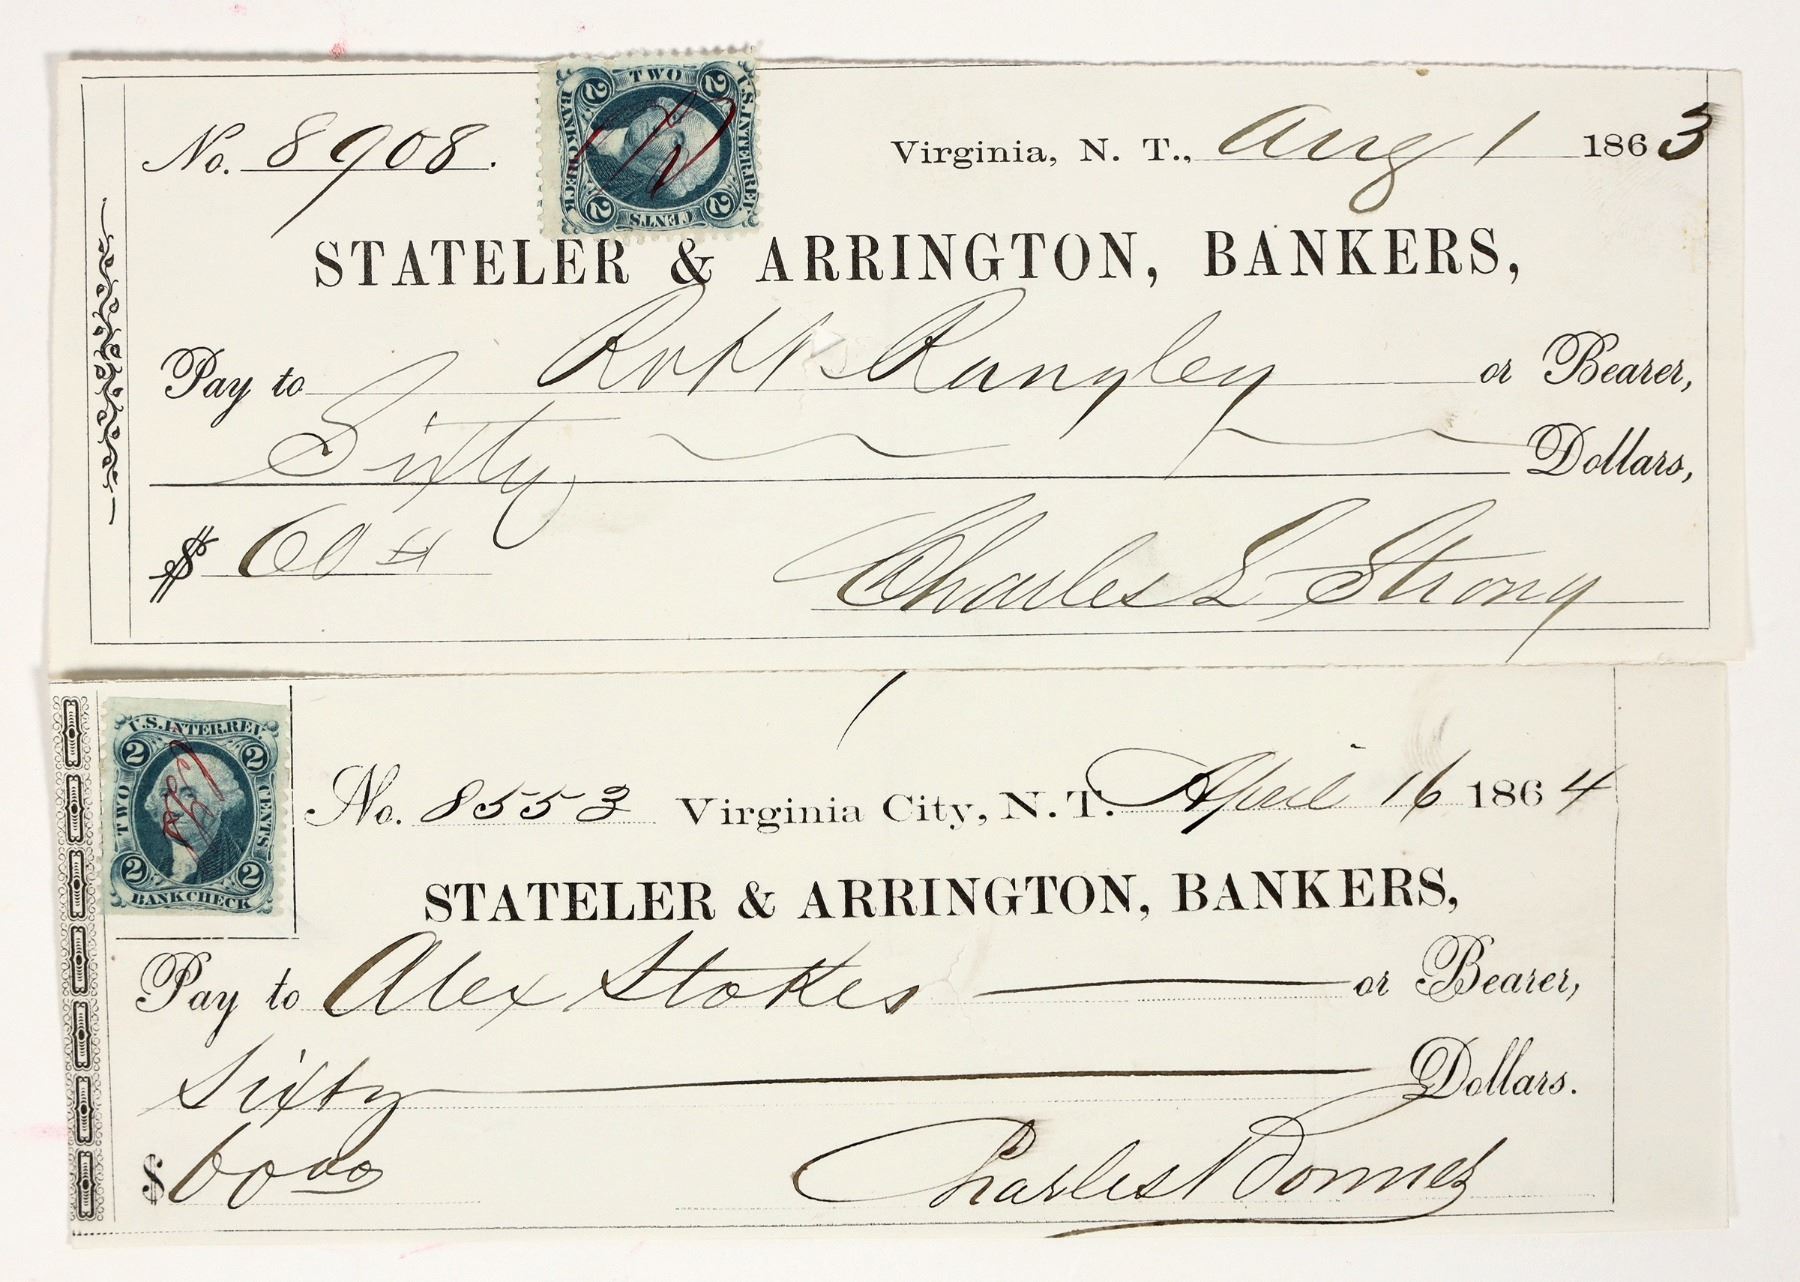 No. 8908.
TWO
2 2
U.S. INTER. REV.
BANK CHECK
2 2
CENTS
Virginia, N. T., Aug 1 1863
STATELER & ARRINGTON, BANKERS,
Pay to Robt Rangley or Bearer,
Sixty Dollars,
$ 60
Charles L Strong
U.S. INTER. REV.
2 2
TWO CENTS
2 2
BANK CHECK
No. 8553 Virginia City, N. T. April 16 1864
STATELER & ARRINGTON, BANKERS,
Pay to Alex Stokes or Bearer,
Sixty Dollars.
$ 60 00
Charles Bonner